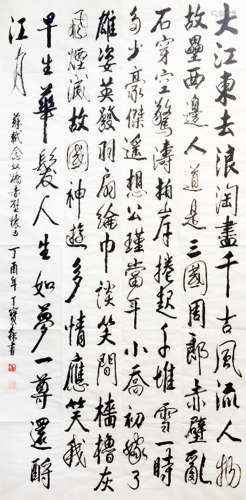 大江東去浪淘盡千古風流人物
故壘西邊人道是三國周郎赤壁亂
石穿空驚濤拍岸捲起千堆雪一時
多少豪傑遙想公瑾當年小喬初嫁了
雄姿英發羽扇綸巾談笑間檣櫓灰
飛煙滅故國神遊多情應笑我
早生華髮人生如夢一尊還酹
江月
蘇軾念奴嬌赤壁懷古
丁酉年丁寶書